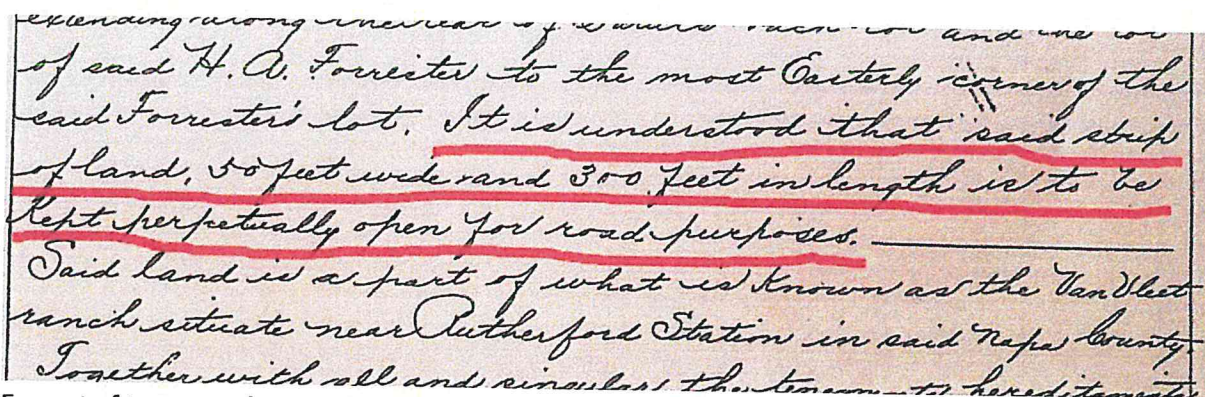 extending along the rear of and the lot
of said H. A. Forrester to the most Easterly corner of the
said Forrester's lot. It is understood that said strip
of land, 50 feet wide and 300 feet in length is to be
Kept perpetually open for road purposes.
Said land is a part of what is Known as the Van Vleet
ranch situate near Rutherford Station in said Napa County.
Together with all and singular the tenements hereditaments